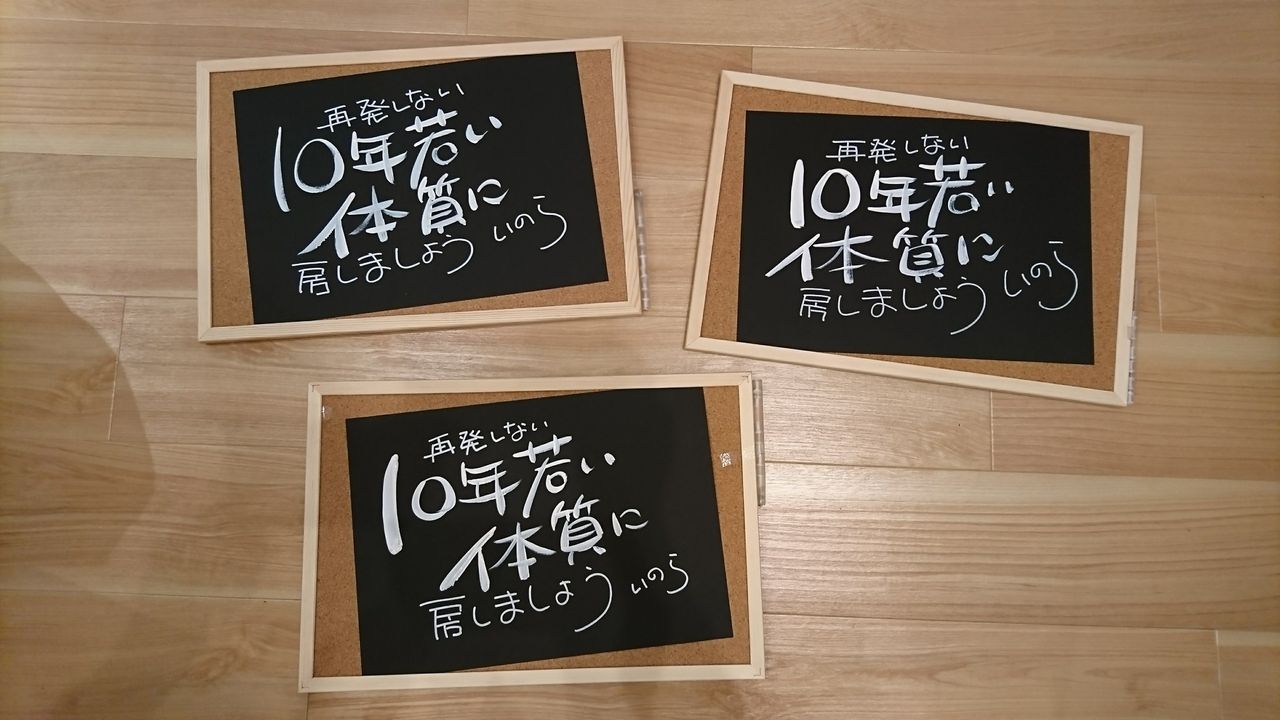 再発しない
10年若い
体質に
房しましょう いのら
再発しない
10年若い
体質に
房しましょう いのら
再発しない
10年若い
体質に
房しましょう いのら